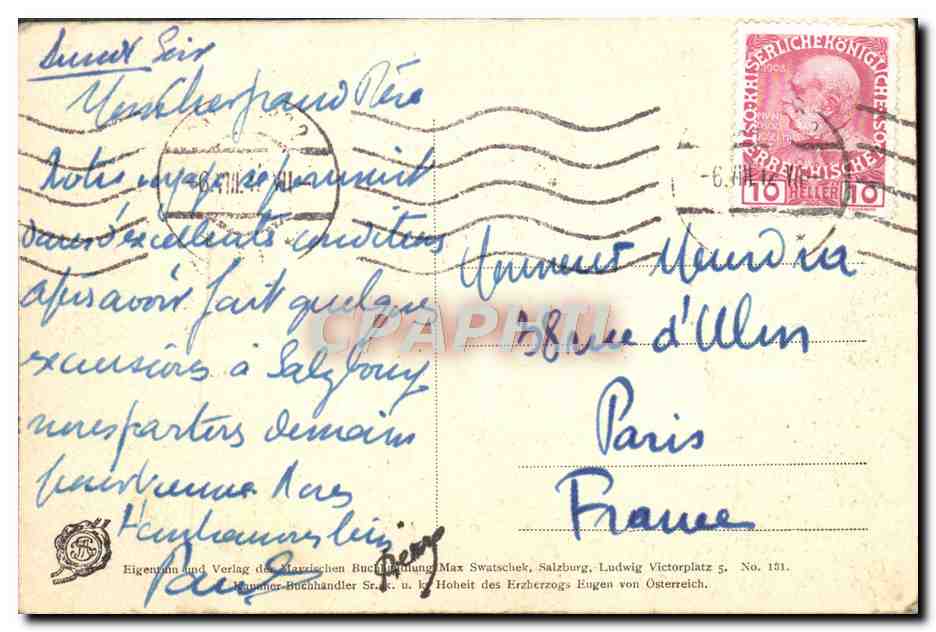 Soir
Mon cher grand Père
Notre voyage se poursuit
dans d'excellentes conditions
après avoir fait quelques
excursions à Salzbourg
nous partons demain
pour Vienne Nous
Paul
Monsieur
38 rue d'Ulm
Paris
France
KAISERLICHEKÖNIGLICHE ÖSTERREICHISCHE POST
1908
10 HELLER 10
-6.VIII.12.VII-
-6.VIII.12.VII
CPAPHIL
Eigentum und Verlag der Mayrischen Buchhandlung Max Swatschek, Salzburg, Ludwig Victorplatz 5. No. 131.
Kammer-Buchhändler Sr. k. u. k. Hoheit des Erzherzogs Eugen von Österreich.